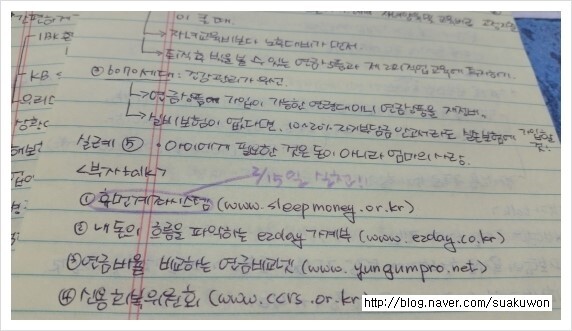 이 올 때.
→ 자녀교육비보다 노후대비가 먼저.
→ 퇴직후 버틸 수 있는 연금상품과 제2의 직업교육에 투자하기.
- IBK
② 60·70세대 : 건강관리가 우선.
- KB
→ 연금상품에 가입이 가능한 연령대이니 연금상품을 재정비.
→ 실비보험이 없다면, 10~20% 자기부담금 안고서라도 실손보험에 가입할 것.
실천예 ⑤ • 아이에게 필요한 것은 돈이 아니라 엄마의 사랑.
<부자talk>
2/15일 실천!!
① 휴면계좌시스템 (www.sleepmoney.or.kr)
② 내 돈의 흐름을 파악하는 ezday 가계부 (www.ezday.co.kr)
③ 연금비율 비교하는 연금비교넷 (www.yungumpro.net)
④ 신용회복위원회 (www.ccrs.or.kr
http://blog.naver.com/suakuwon